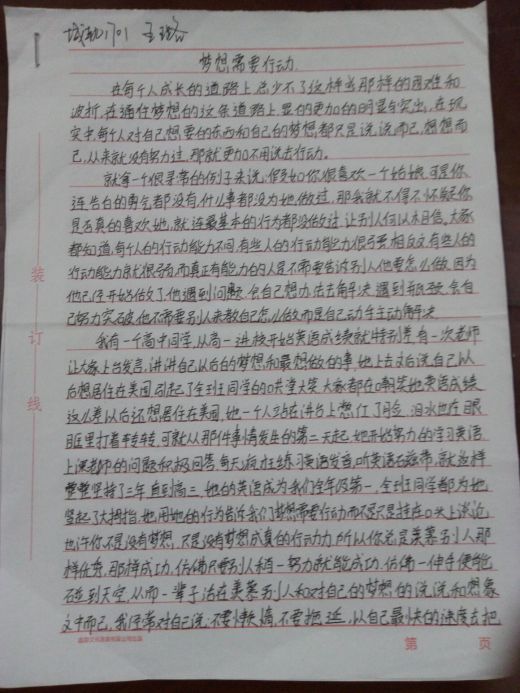 城轨1701 王
梦想需要行动
在每个人成长的道路上总少不了这样或那样的困难和
波折,在通往梦想的这条道路上,显的更加的明显与突出,在现
实中,每个人对自己想要的东西和自己的梦想,都只是说说而已,想想而
已,从来就没有努力过,那就更加不用说去行动。
就拿一个很寻常的例子来说,假如你很喜欢一个姑娘,可是你
连告白的勇气都没有,什么事都没为她做过,那我就不得不怀疑你
是否真的喜欢她,就连最基本的行为都没做过,让别人何以相信,大家
都知道,每个人的行动能力不同,有些人的行动能力很强,相反,有些人的
行动能力就很弱,而真正有能力的人是不需要告诉别人他要怎么做,因为
他已经开始做了,他遇到问题,会自己想办法去解决,遇到瓶颈,会自
己努力突破,他不需要别人来教自己怎么做而是自己动手主动解决。
我有一个高中同学,从高一进校开始英语成绩就特别差,有一次老师
让大家上台发言,讲讲自己以后的梦想和最想做的事,她上去后说,自己以
后想居住在美国,引起了全班同学的哄堂大笑,大家都在嘲笑她英语成绩
这么差以后还想居住在美国,她一个人站在讲台上憋红了脸,泪水也在眼
眶里打着转转,可就从那件事情发生的第二天起,她开始努力的学习英语,
上课老师的问题积极回答,每天疯狂练习英语发音,听英语磁带,就这样
整整坚持了二年,直到高三,她的英语成为我们全年级第一,全班同学都为她
竖起了大拇指,她用她的行为告诉我们梦想需要行动而不是只是挂在口头上谈论,
也许你不是没有梦想,只是没有梦想成真的行动力,所以你总是羡慕别人那
样优秀,那样成功,仿佛只要别人稍一努力就能成功,仿佛一伸手便能
碰到天空,从而一辈子活在羡慕别人和对自己的梦想的说说和想象
之中而已,我经常对自己说:不要懒惰,不要拖延,以自己最快的速度去把
装
订
线
第 页